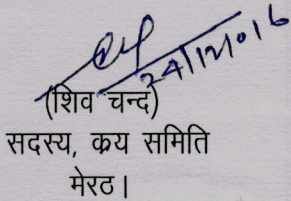 24/12/016
(शिव चन्द)
सदस्य, क्रय समिति
मेरठ।